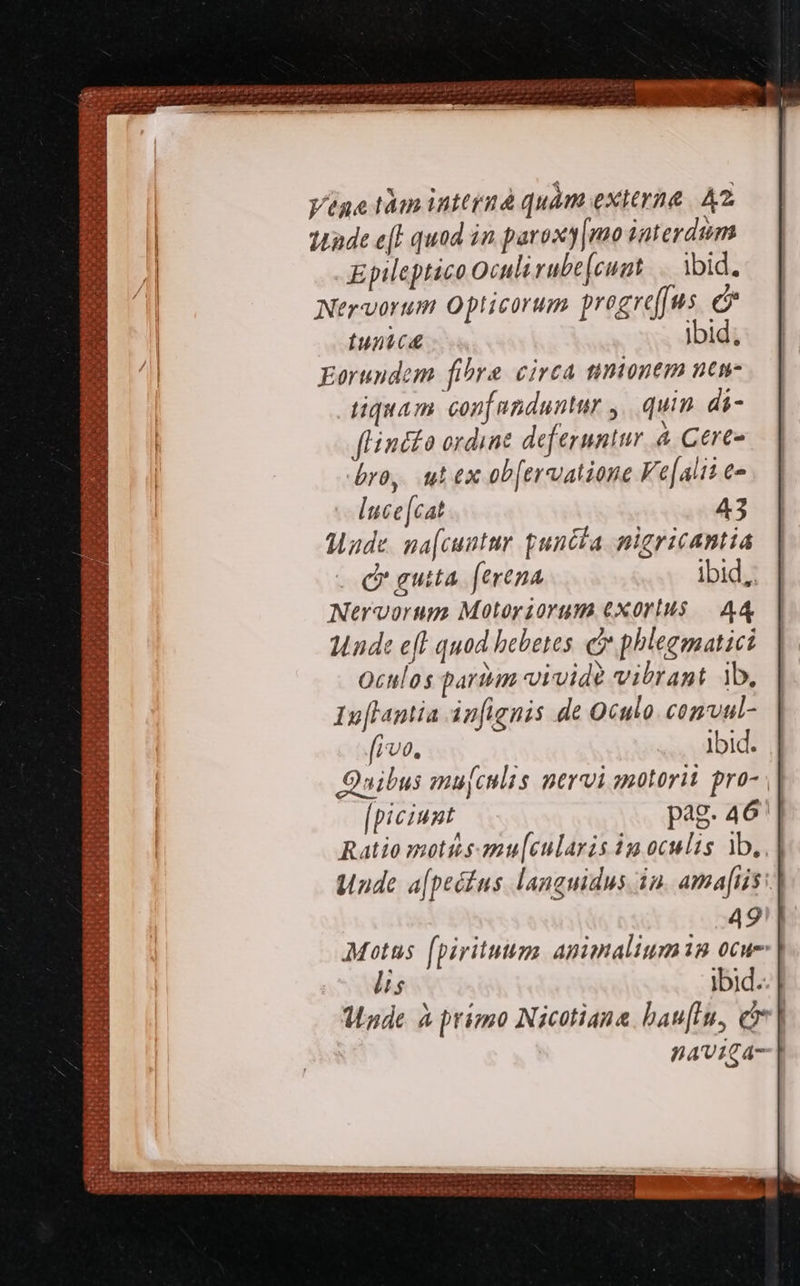 Venæ tàm internæ quàm externæ 42
Unde eſt quod in paroxyſmo interdùm
Epileptico Oculi rubeſcunt ibid.
Nervorum Opticorum progreſſus &
tunicæ ibid.
Eorundem fibræ circa unionem neu-
tiquam confunduntur, quin di-
ſtincto ordine deferuntur à Cere-
bro, ut ex obſervatione Veſalii e-
luceſcat 43
Unde naſcuntur puncta nigricantia
& gutta ſerena ibid,
Nervorum Motoriorum exortus 44
Unde eſt quod hebetes & phlegmatici
Oculos parùm vividè vibrant ib,
Inſtantia inſignis de Oculo convul-
ſivo, ibid.
Quibus muſculis nervi motorii pro-
ſpiciunt pag. 46
Ratio motûs muſcularis in oculis ib,
Unde aſpectus languidus in amaſiis
49
Motus ſpirituum animalium in ocu-
lis ibid.
Unde à primo Nicotianæ hauſtu, &
naviga-